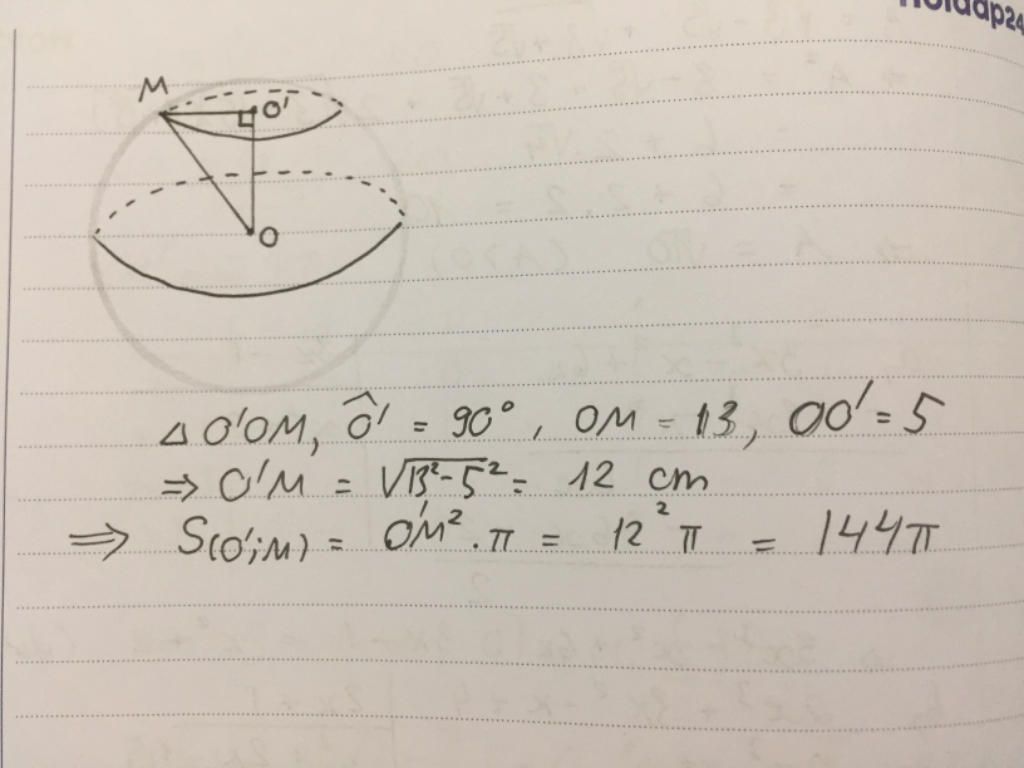 Hoidap24
M
O'
O
△ O'OM, Ô' = 90°, OM = 13, OO' = 5
⇒ O'M = √13²-5² = 12 cm
⇒ S(O';M) = O'M². π = 12² π = 144π